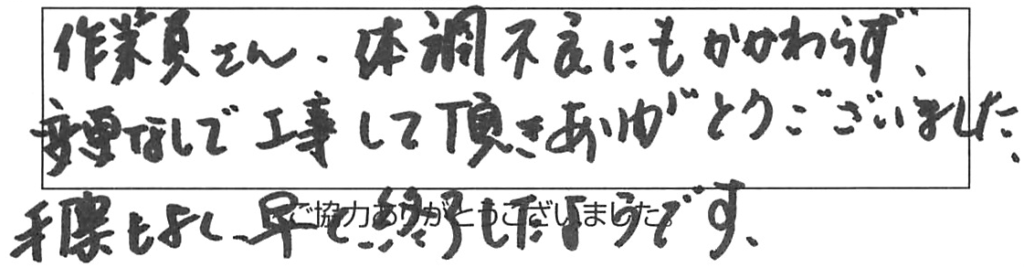 作業員さん、体調不良にもかかわらず、
変更なしで工事して頂きありがとうございました、
手際もよく、早く終了したようです、
ご協力ありがとうございました。